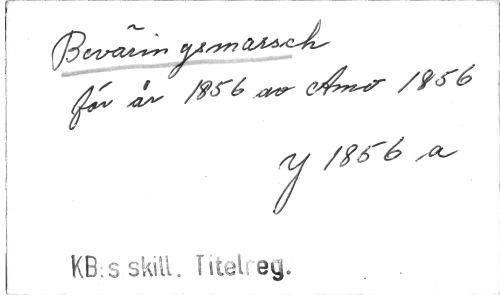 Beväringsmarsch
för år 1856 av Amo 1856
Y 1856 a
KB:s skill. Titelreg.